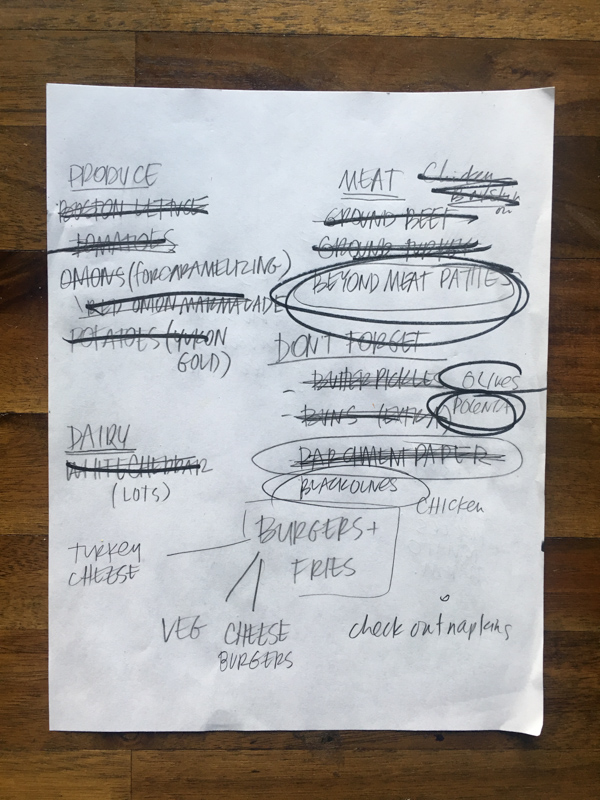 PRODUCE
BOSTON LETTUCE
TOMATOES
ONIONS (FOR CARAMELIZING)
RED ONION MARMALADE
POTATOES (YUKON
GOLD)
DAIRY
WHITE CHEDDAR
(LOTS)
MEAT
Chicken
GROUND BEEF
GROUND TURKEY
BEYOND MEAT PATTIES
DON'T FORGET
BUTTER PICKLES
OLIVES
BUNS (EXTRA)
POLENTA
PARCHMENT PAPER
BLACK OLIVES
CHICKEN
BURGERS +
FRIES
TURKEY
CHEESE
VEG
CHEESE
BURGERS
check out napkins